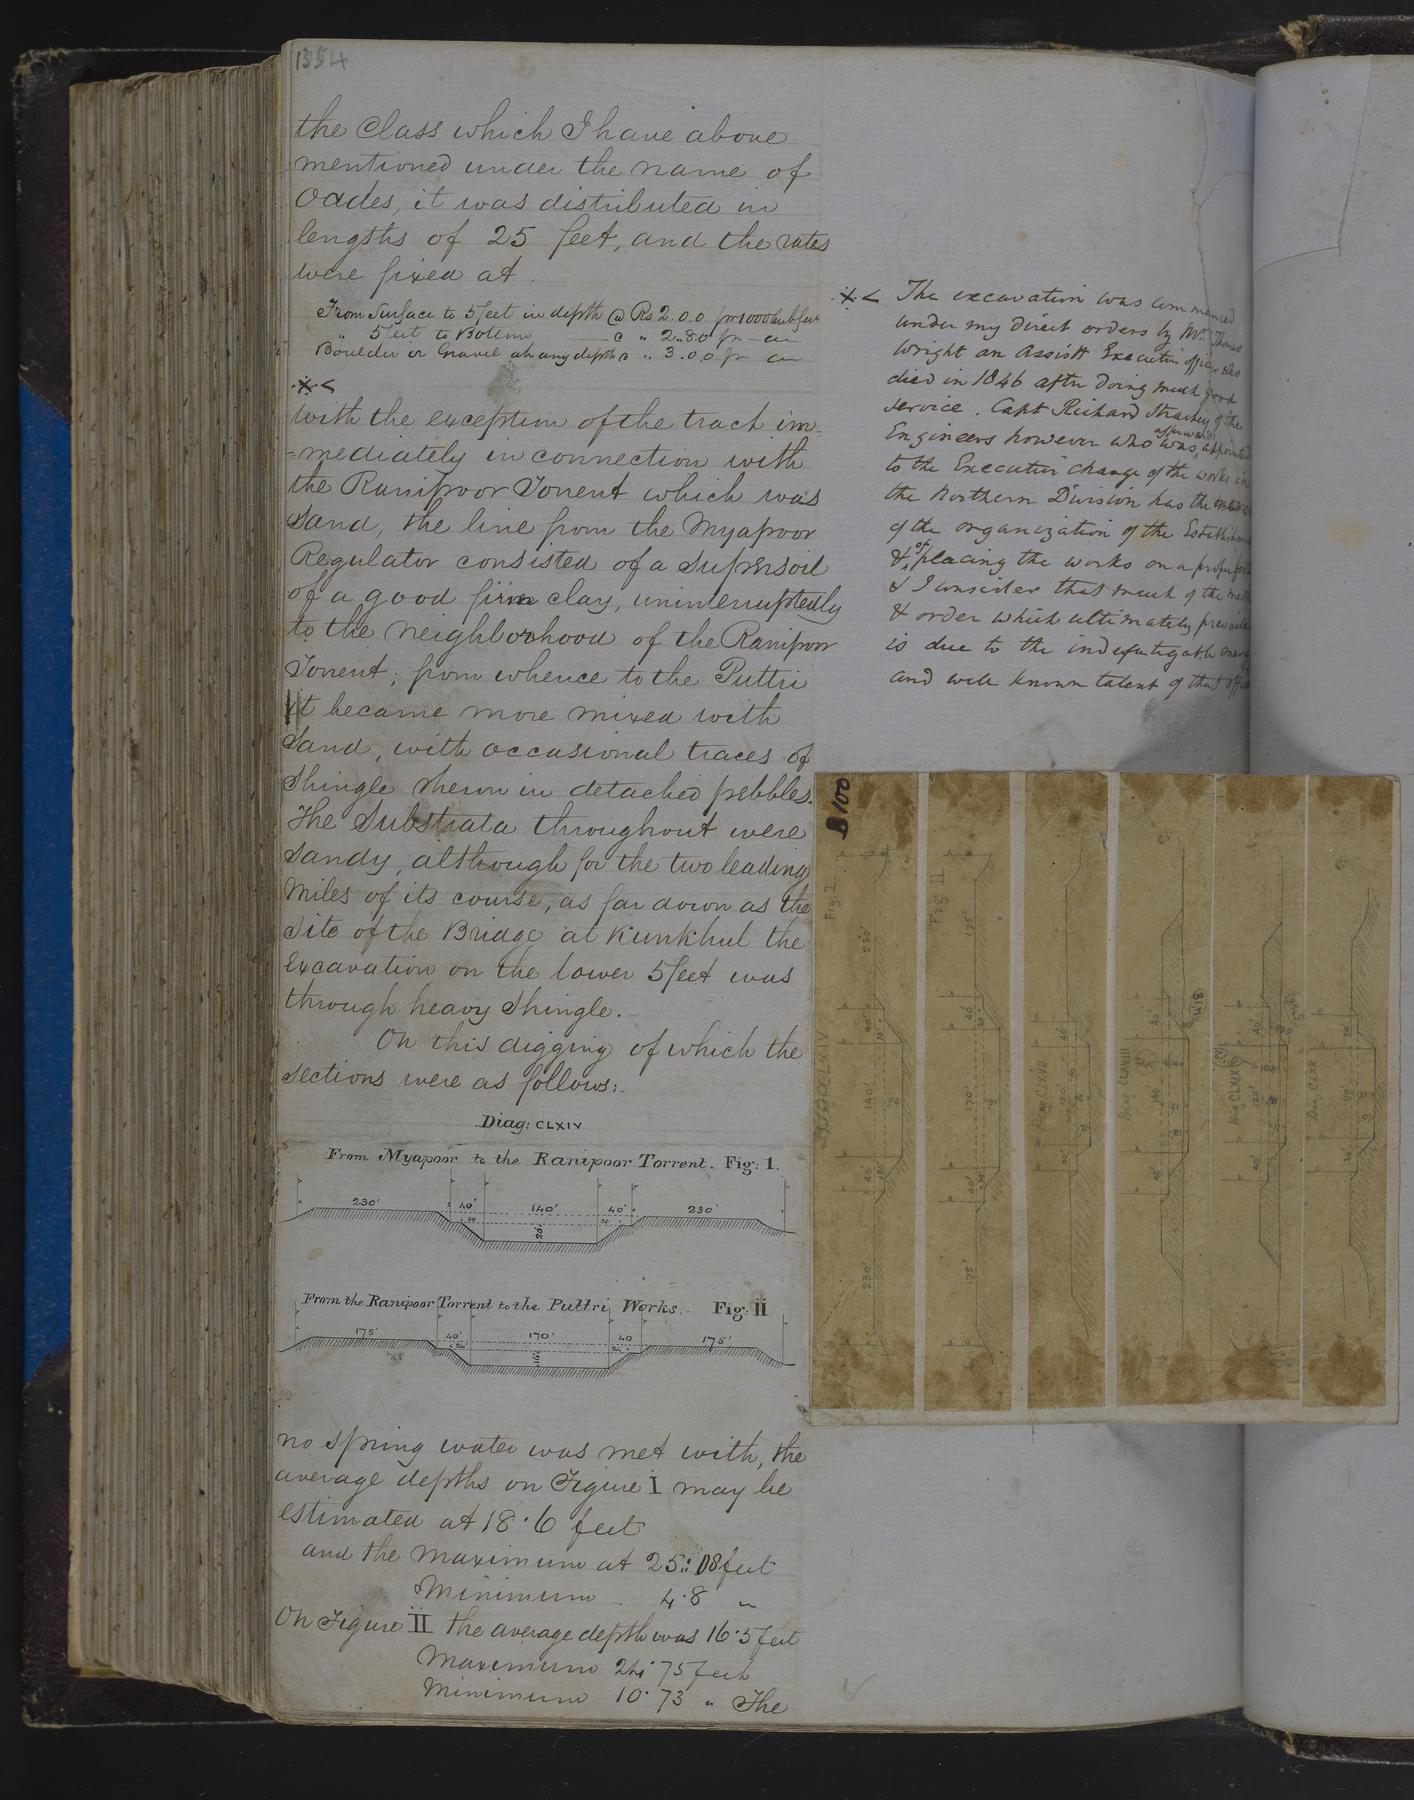 1354
the Class which I have above
mentioned under the name of
Oades, it was distributed in
lengths of 25 feet, and the rates
were fixed at
From Surface to 5 feet in depth @ Rs 2.0.0 pr 1000 Cub feet
" 5 feet to Bottom — @ " 2..8.0 pr —
Boulder or Gravel at any depth @ .. 3.0.0 pr
with the exception of the tract im=
=mediately in connection with
the Ranipoor Torrent which was
Sand, the line from the Myapoor
Regulator consisted of a Supersoil
of a good firm clay, uninterruptedly
to the neighborhood of the Ranipoor
Torrent; from whence to the Puttri
it became more mixed with
Sand, with occasional traces of
Shingle shewn in detached pebbles.
The Substrata throughout were
Sandy, although for the two leading
Miles of its course, as far down as the
Site of the Bridge at Kunkhul the
Excavation on the lower 5 feet was
through heavy Shingle.
On this digging of which the
Sections were as follows:
Diag: CLXIV
From Myapoor to the Ranipoor Torrent. Fig: 1.
230' 40' 140' 40' 230'
20'
From the Ranipoor Torrent to the Puttri Works. Fig: II
175' 40' 170' 40 175'
16'
no spring water was met with, the
average depths on Figure I may be
estimated at 18.6 feet
and the Maximum at 25.. 08 feet
Minimum — 4.8 "
On Figure II the average depth was 16.5 feet
Maximum 24.75 feet
Minimum 10.73 " The
The excavation was commenced
under my direct orders by Mr. Thomas
Wright an Assistt Executive officer who
died in 1846 after doing much good
service. Capt Richard Strachey of the
Engineers however who was afterwards appointed
to the Executive charge of the works in
the Northern Division has the
of the organization of the
& of placing the works on a proper
& I consider that much of the
& order which ultimately
is due to the indefatigable
and well known talent of that
B100
Fig. I
230' 40' 140' 40' 230'
Fig II
175' 40' 170' 40' 175'
Diag CLXVII
40' 40'
Diag. CLXVIII
40' 140 40'
Diag CLXIX
40' 120'
Diag. CLXX